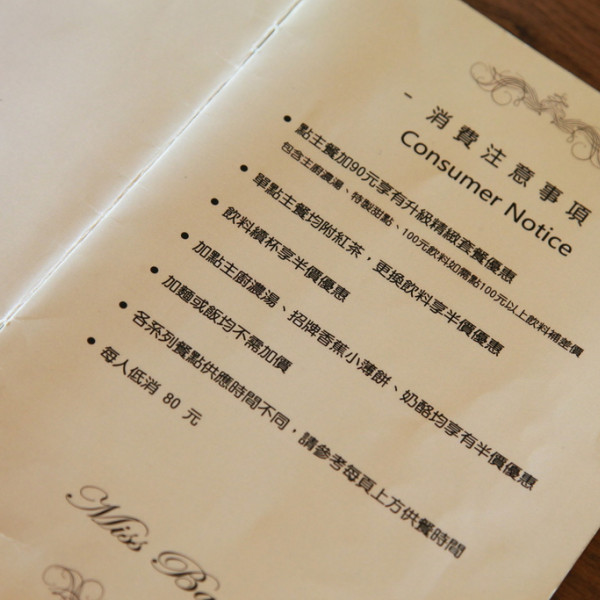 消費注意事項
Consumer Notice
• 點主餐加90元享有升級精緻套餐優惠
包含主廚濃湯、特製甜點、100元飲料如需點100元以上飲料補差價
• 單點主餐均附紅茶，更換飲料享半價優惠
• 飲料續杯享半價優惠
• 加點主廚濃湯、招牌香蕉小薄餅、奶酪均享有半價優惠
• 加麵或飯均不需加價
• 各系列餐點供應時間不同，請參考每頁上方供餐時間
• 每人低消 80 元
Miss